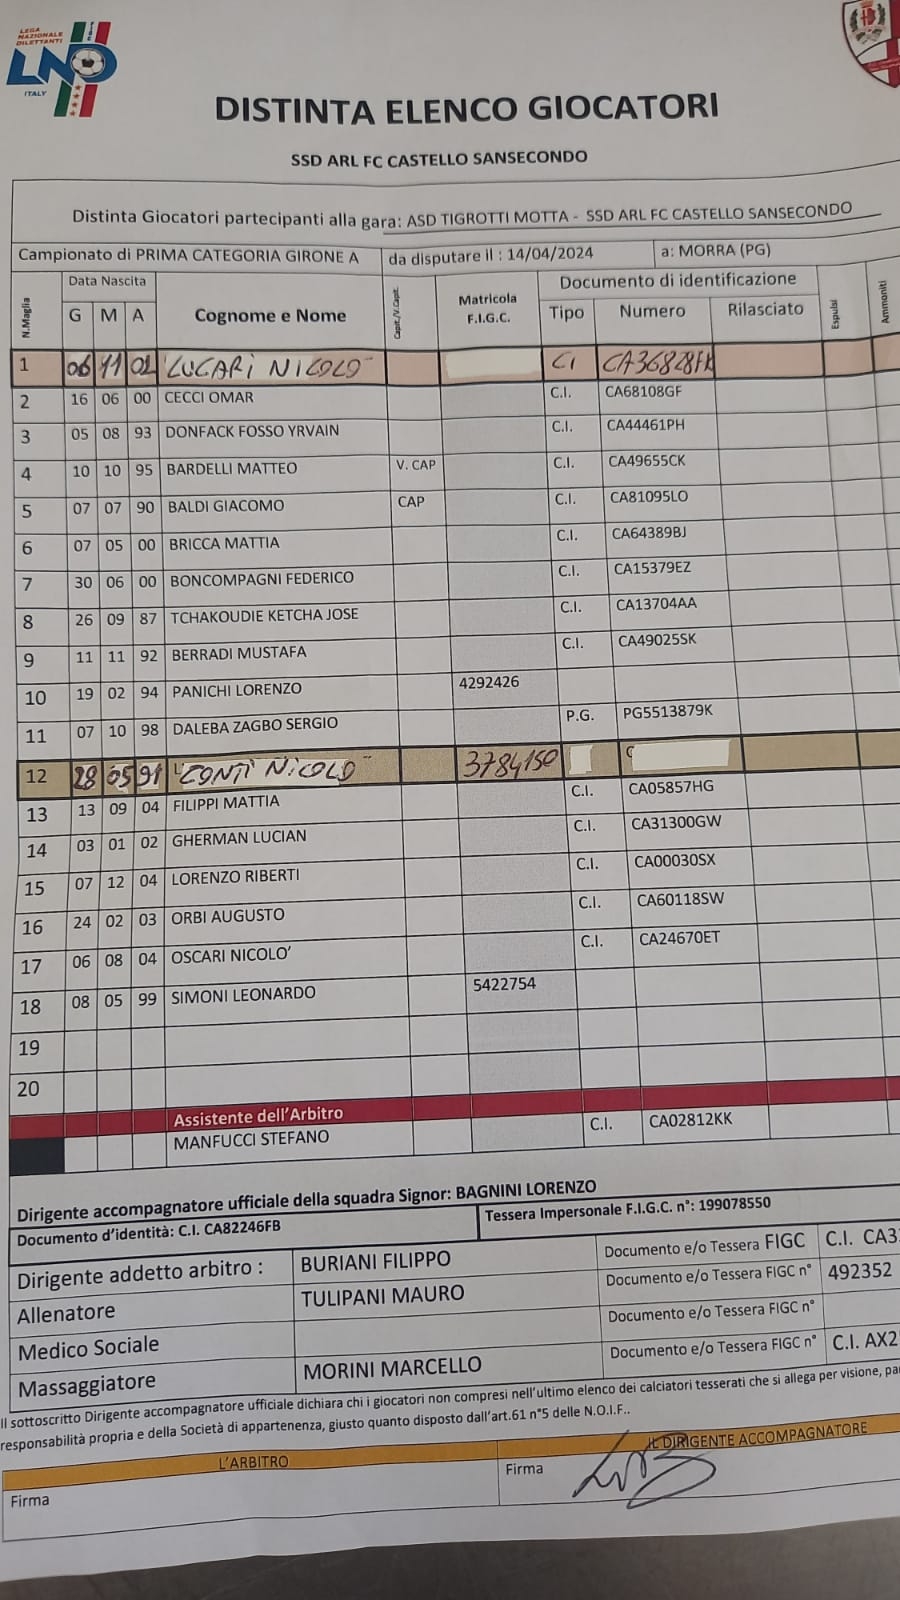 LEGA
NAZIONALE
DILETTANTI
FIGC
LND
ITALY
DISTINTA ELENCO GIOCATORI
SSD ARL FC CASTELLO SANSECONDO
Distinta Giocatori partecipanti alla gara: ASD TIGROTTI MOTTA - SSD ARL FC CASTELLO SANSECONDO
Campionato di PRIMA CATEGORIA GIRONE A da disputare il : 14/04/2024 a: MORRA (PG)
N.Maglia Data Nascita Cognome e Nome Capit./V.Capit. Matricola F.I.G.C. Documento di identificazione Espulsi Ammoniti
G M A Tipo Numero Rilasciato
1 06 11 02 LUCARI NICOLO' CI CA36828FK
2 16 06 00 CECCI OMAR C.I. CA68108GF
3 05 08 93 DONFACK FOSSO YRVAIN C.I. CA44461PH
4 10 10 95 BARDELLI MATTEO V. CAP C.I. CA49655CK
5 07 07 90 BALDI GIACOMO CAP C.I. CA81095LO
6 07 05 00 BRICCA MATTIA C.I. CA64389BJ
7 30 06 00 BONCOMPAGNI FEDERICO C.I. CA15379EZ
8 26 09 87 TCHAKOUDIE KETCHA JOSE C.I. CA13704AA
9 11 11 92 BERRADI MUSTAFA C.I. CA49025SK
10 19 02 94 PANICHI LORENZO 4292426
11 07 10 98 DALEBA ZAGBO SERGIO P.G. PG5513879K
12 28 05 91 CONTI NICOLO' 3784150
13 13 09 04 FILIPPI MATTIA C.I. CA05857HG
14 03 01 02 GHERMAN LUCIAN C.I. CA31300GW
15 07 12 04 LORENZO RIBERTI C.I. CA00030SX
16 24 02 03 ORBI AUGUSTO C.I. CA60118SW
17 06 08 04 OSCARI NICOLO' C.I. CA24670ET
18 08 05 99 SIMONI LEONARDO 5422754
19
20
Assistente dell'Arbitro
MANFUCCI STEFANO C.I. CA02812KK
Dirigente accompagnatore ufficiale della squadra Signor: BAGNINI LORENZO
Documento d'identità: C.I. CA82246FB Tessera Impersonale F.I.G.C. n°: 199078550
Dirigente addetto arbitro : BURIANI FILIPPO Documento e/o Tessera FIGC C.I. CA3
Allenatore TULIPANI MAURO Documento e/o Tessera FIGC n° 492352
Medico Sociale Documento e/o Tessera FIGC n°
Massaggiatore MORINI MARCELLO Documento e/o Tessera FIGC n° C.I. AX2
Il sottoscritto Dirigente accompagnatore ufficiale dichiara chi i giocatori non compresi nell'ultimo elenco dei calciatori tesserati che si allega per visione,
responsabilità propria e della Società di appartenenza, giusto quanto disposto dall'art.61 n°5 delle N.O.I.F..
L'ARBITRO IL DIRIGENTE ACCOMPAGNATORE
Firma Firma